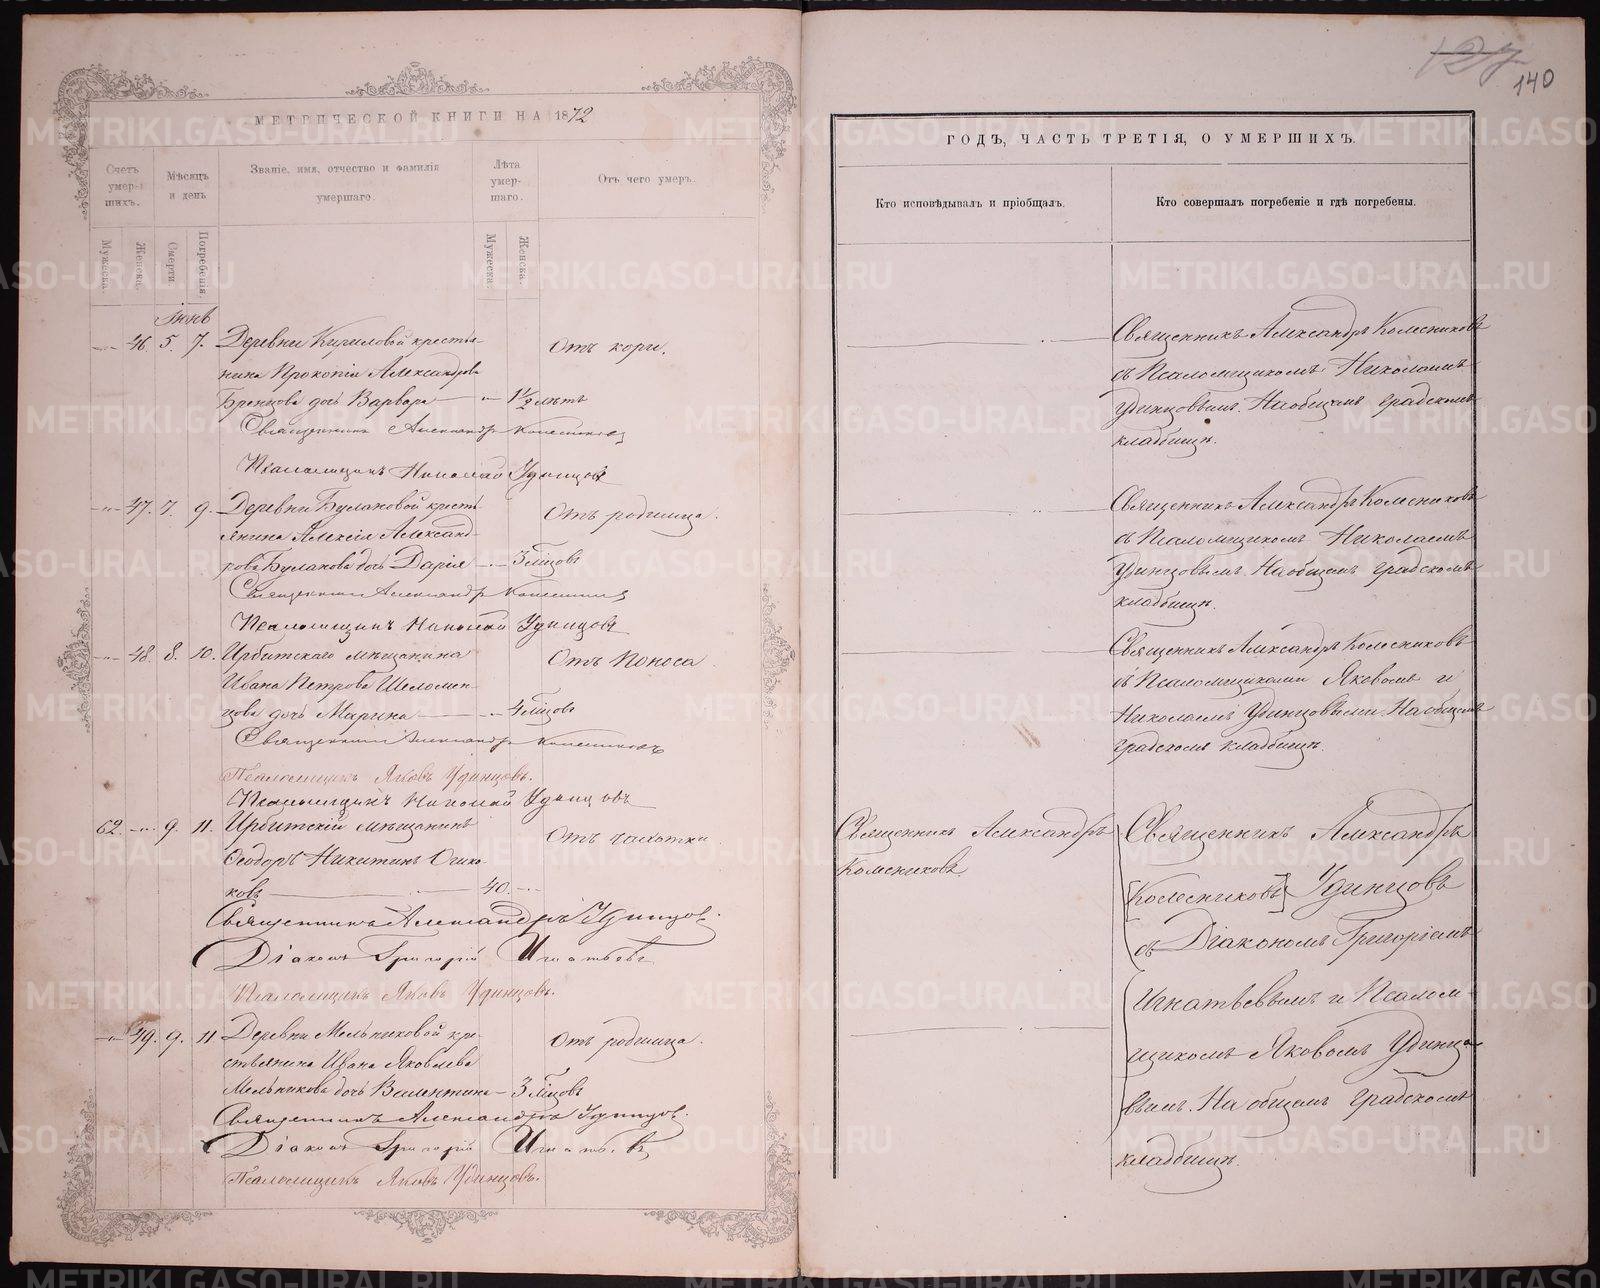 127
140
МЕТРИЧЕСКОЙ КНИГИ НА 1872
Счетъ умер-шихъ.
Мѣсяцъ и день
Званіе, имя, отчество и фамилія умершаго.
Лѣта умер-шаго.
Отъ чего умеръ.
Мужеска.
Женска.
Смерти.
Погребенія.
Мужеска.
Женска.
Іюнь
46. 5. 7. Деревни Кириловой крестья-
нина Прокопія Александрова
Бренцова дочь Варвара 1½ лѣтъ
Отъ кори.
Священникъ Александръ Колесниковъ
Псаломщикъ Николай Удинцовъ
47. 7. 9. Деревни Булановой кресть-
янина Алексія Александ-
рова Буланова дочь Дарія 3 мѣсцовъ
Отъ родимца.
Священникъ Александръ Колесниковъ
Псаломщикъ Николай Удинцовъ
48. 8. 10. Ирбитскаго мѣщанина
Ивана Петрова Шеломен-
цова дочь Марина 4 мѣсцовъ
Отъ поноса
Священникъ Александръ Колесниковъ
Псаломщикъ Яковъ Удинцовъ.
Псаломщикъ Николай Удинцовъ
62. 9. 11. Ирбитскій мѣщанинъ
Ѳеодоръ Никитинъ Ожи-
ковъ 40.
Отъ чахотки
Священникъ Александръ Удинцовъ.
Діаконъ Григорій Игнатьевъ
Псаломщикъ Яковъ Удинцовъ.
49. 9. 11 Деревни Мельниковой кре-
стьянина Ивана Яковлева
Мельникова дочь Валентина 3 мѣсцовъ
Отъ родимца.
Священникъ Александръ Удинцовъ.
Діаконъ Григорій Игнатьевъ
Псаломщикъ Яковъ Удинцовъ.
ГОДЪ, ЧАСТЬ ТРЕТІЯ, О УМЕРШИХЪ.
Кто исповѣдывалъ и пріобщалъ.
Кто совершалъ погребеніе и гдѣ погребены.
Священникъ Александръ Колесниковъ
съ Псаломщикомъ Николаемъ
Удинцовымъ. На общемъ градскомъ
кладбищѣ.
Священникъ Александръ Колесниковъ
съ Псаломщикомъ Николаемъ
Удинцовымъ. На общемъ градскомъ
кладбищѣ.
Священникъ Александръ Колесниковъ
съ Псаломщиками Яковомъ и
Николаемъ Удинцовыми. На общемъ
градскомъ кладбищѣ.
Священникъ Александръ
Колесниковъ.
Священникъ Александръ
[Колесниковъ] Удинцовъ
съ Діакономъ Григоріемъ
Игнатьевымъ и Псалом-
щикомъ Яковомъ Удинцо-
вымъ. На общемъ градскомъ
кладбищѣ.
METRIKI.GASO-URAL.RU